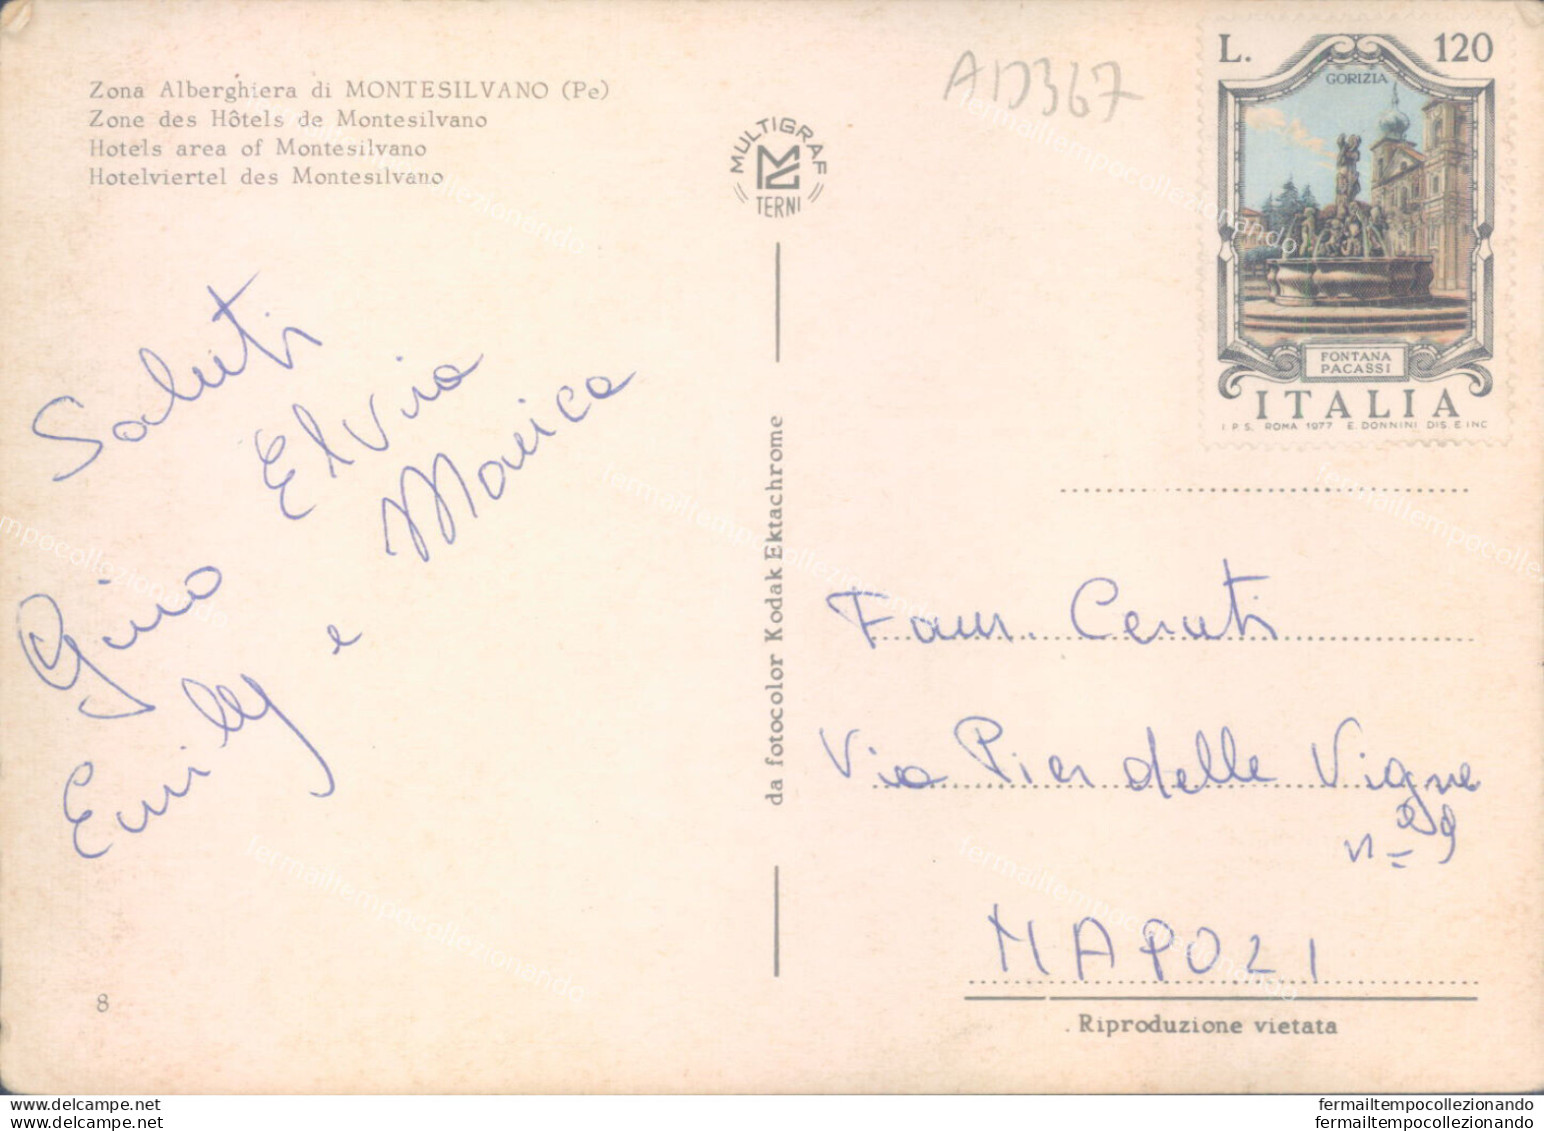 Zona Alberghiera di MONTESILVANO (Pe)
Zone des Hôtels de Montesilvano
Hotels area of Montesilvano
Hotelviertel des Montesilvano
AD367
MULTIGRAF
TERNI
L. 120
GORIZIA
FONTANA
PACASSI
ITALIA
I.P.S. ROMA 1977 E. DONNINI DIS. E INC.
Saluti
Elvia
Monica
Gino
e
Emilly
da fotocolor Kodak Ektachrome
Fam. Ceruti
Via Pier delle Vigne
n° 29
NAPOLI
8
Riproduzione vietata
fermailtempocollezionando
fermailtempocollezionando
delcampe.net
fermailtempocollezionando
delcampe.net
fermailtempocollezionando